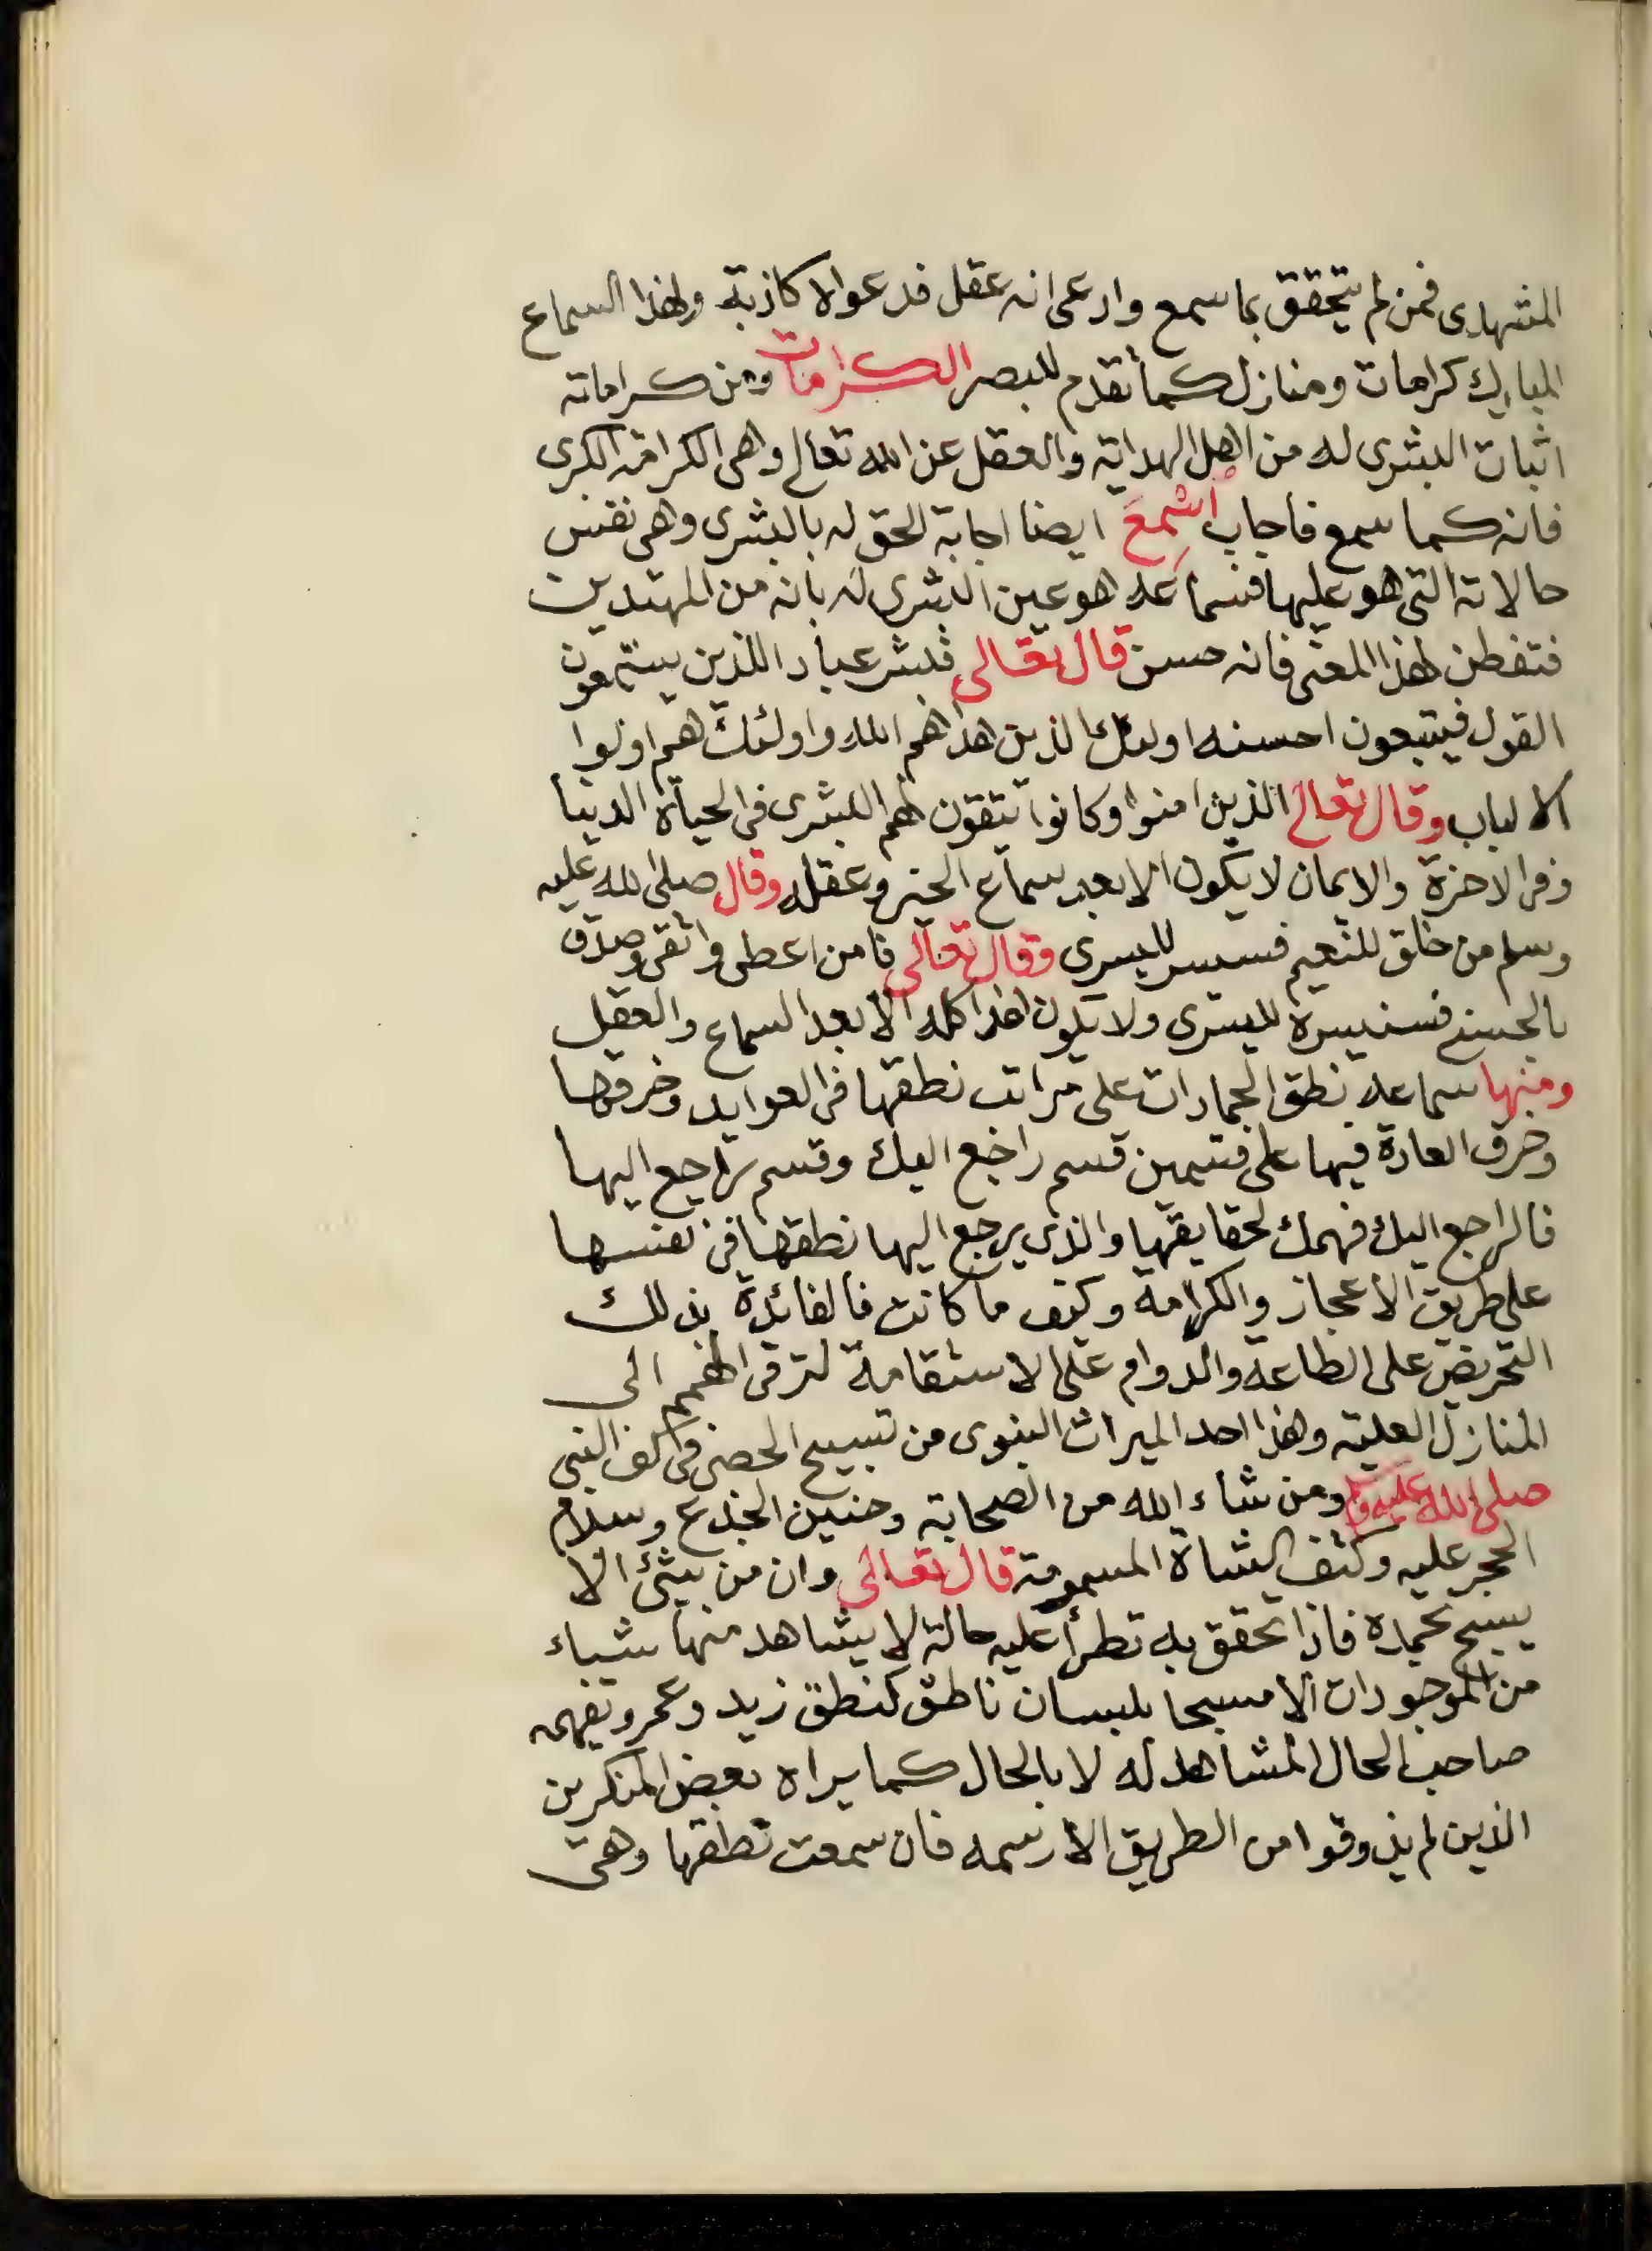 المشهدى فمن لم يتحقق بما سمع وادعى انه عقل فدعواه كاذبة ولهذا السماع
المبارك كرامات ومنازل كما تقدم للبصر الكرامات ومن كراماته
اثبات البشرى له من اهل الهداية والعقل عن الله تعالى وهى الكرامة الكبرى
فانه كما سمع فاجاب اسمع ايضا اجابة الحق له بالبشرى وهى نفس
حالاته التى هو عليها فسماعه هو عين البشرى له بانه من المهتدين
فتفطن لهذا المعنى فانه حسن قال تعالى فبشر عباد اللذين يستمعون
القول فيتبعون احسنه اولئك الذين هداهم الله واولئك هم اولوا
الالباب وقال تعالى الذين امنوا وكانوا يتقون لهم البشرى فى الحياة الدنيا
وفى الاخرة والايمان لا يكون الا بعد سماع الخبر وعقله وقال صلى الله عليه
وسلم من خلق للنعيم فسييسر لليسرى وقال تعالى فامن اعطى واتقى وصدق
بالحسنى فسنيسره لليسرى ولا يكون هذا كله الا بعد السماع والعقل
ومنها سماعه نطق الجمادات على مراتب نطقها فى العوايد وخرقها
وخرق العادة فيها على قسمين قسم راجع اليك وقسم راجع اليها
فالراجع اليك فهمك لحقايقها والذى يرجع اليها نطقها فى نفسها
على طريق الاعجاز والكرامة وكيف ما كانت فالفائدة بذلك
التحريض على الطاعة والدوام على الاستقامة لترقى الهمم الى
المنازل العلية وهذا احد الميراث النبوى من تسبيح الحصى فى كف النبى
صلى الله عليه وسلم ومن شاء الله من الصحابة وحنين الجذع وسلام
الحجر عليه وكتف الشاة المسمومة قال تعالى وان من شئ الا
يسبح بحمده فاذا تحقق به تطرأ عليه حالة لا يشاهد منها شياء
من الموجودات الا مسبحا بلسان ناطق كنطق زيد وعمرو يفهمه
صاحب الحال المشاهد له لا بالحال كما يراه بعض المنكرين
الذين لم يذوقوا من الطريق الا رسمه فان سمعت نطقها وهى